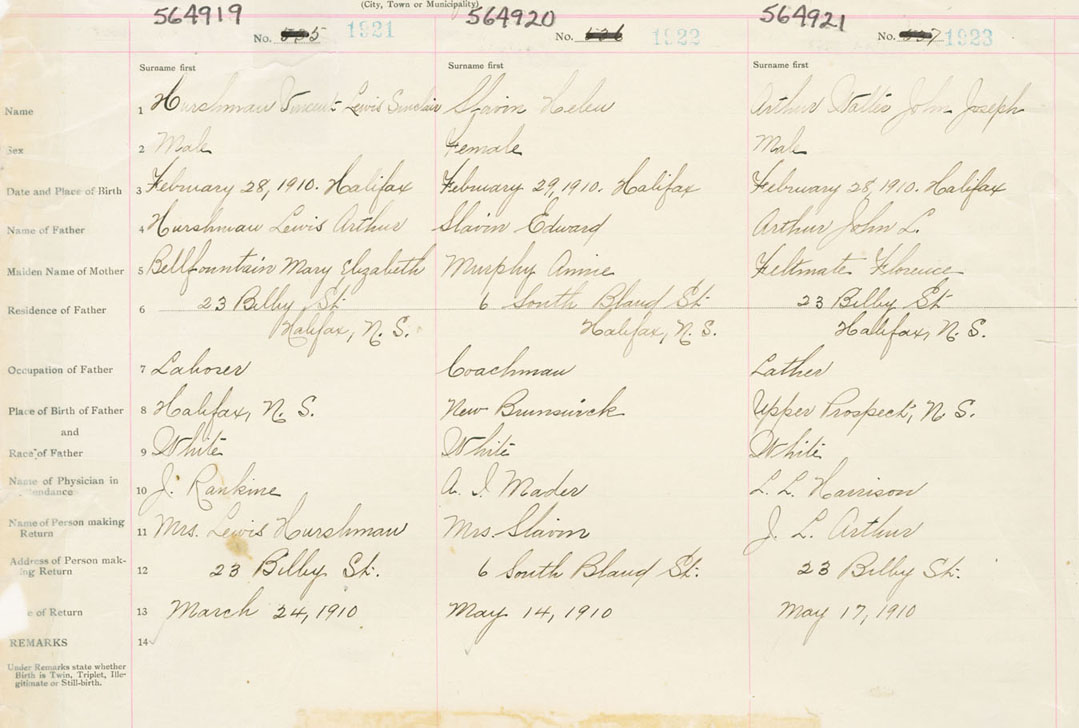 (City, Town or Municipality)
564919 564920 564921
No. 1921 No. 1922 No. 1923
Surname first Surname first Surname first
Name 1 Hurshman Vincent Lewis Sinclair Slavin Helen Arthur John Joseph
Sex 2 Male Female Male
Date and Place of Birth 3 February 28, 1910. Halifax February 29, 1910. Halifax February 28, 1910. Halifax
Name of Father 4 Hurshman Lewis Arthur Slavin Edward Arthur John L.
Maiden Name of Mother 5 Bellfountain Mary Elizabeth Murphy Annie Feltmate Florence
Residence of Father 6 23 Bilby St. 6 South Bland St. 23 Bilby St.
Halifax, N. S. Halifax, N. S. Halifax, N. S.
Occupation of Father 7 Laborer Coachman Lather
Place of Birth of Father 8 Halifax, N. S. New Brunswick Upper Prospect, N. S.
and
Race of Father 9 White White White
Name of Physician in
tendance 10 J. Rankine A. I. Mader L. L. Harrison
Name of Person making
Return 11 Mrs. Lewis Hurshman Mrs Slavin J. L. Arthur
Address of Person mak-
ing Return 12 23 Bilby St. 6 South Bland St. 23 Bilby St.
e of Return 13 March 24, 1910 May 14, 1910 May 17, 1910
REMARKS 14
Under Remarks state whether
Birth is Twin, Triplet, Ille-
gitimate or Still-birth.